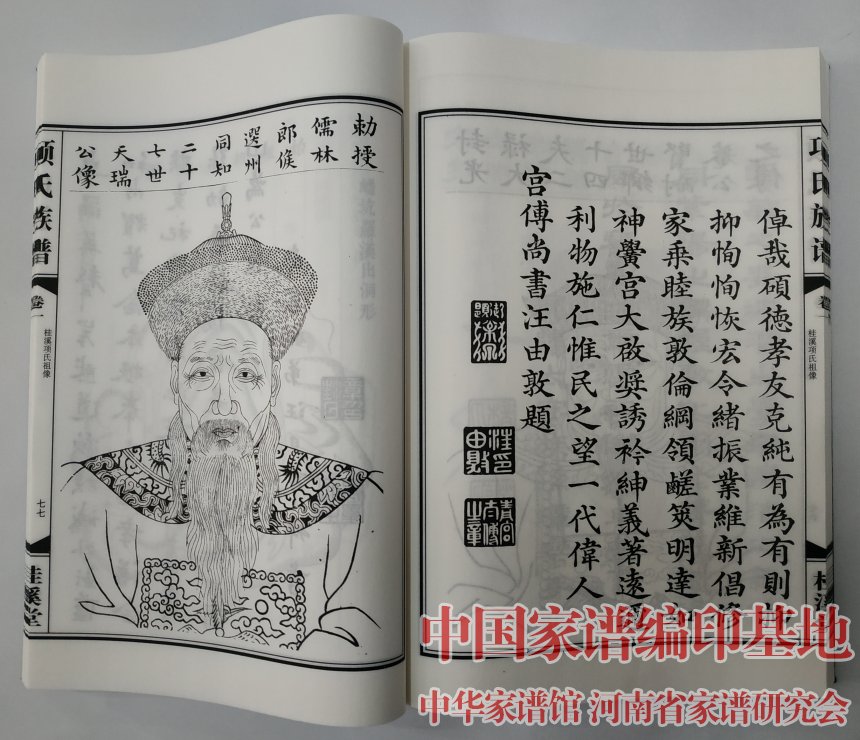 项氏族谱
卷一
桂溪项氏祖像
倬哉碩德孝友克純有為有則
抑恂恂恢宏令緒振業維新倡修
家乘睦族敦倫綱領鹺筴明達
神黌宮大啟奨誘衿紳義著遠
利物施仁惟民之望一代偉人
宮傅尚書汪由敦題
勅授
儒林
郎候
選州
同知
二十
七世
天瑞
公像
项氏族谱
卷一
桂溪项氏祖像
七七
桂溪堂
中国家谱编印基地
中华家谱馆 河南省家谱研究会